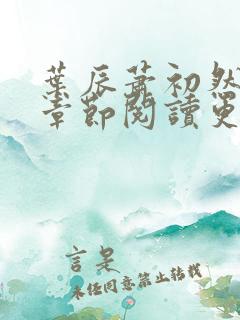 葉辰蕭初然
章節閱讀更
言是
未經同意禁止轉載